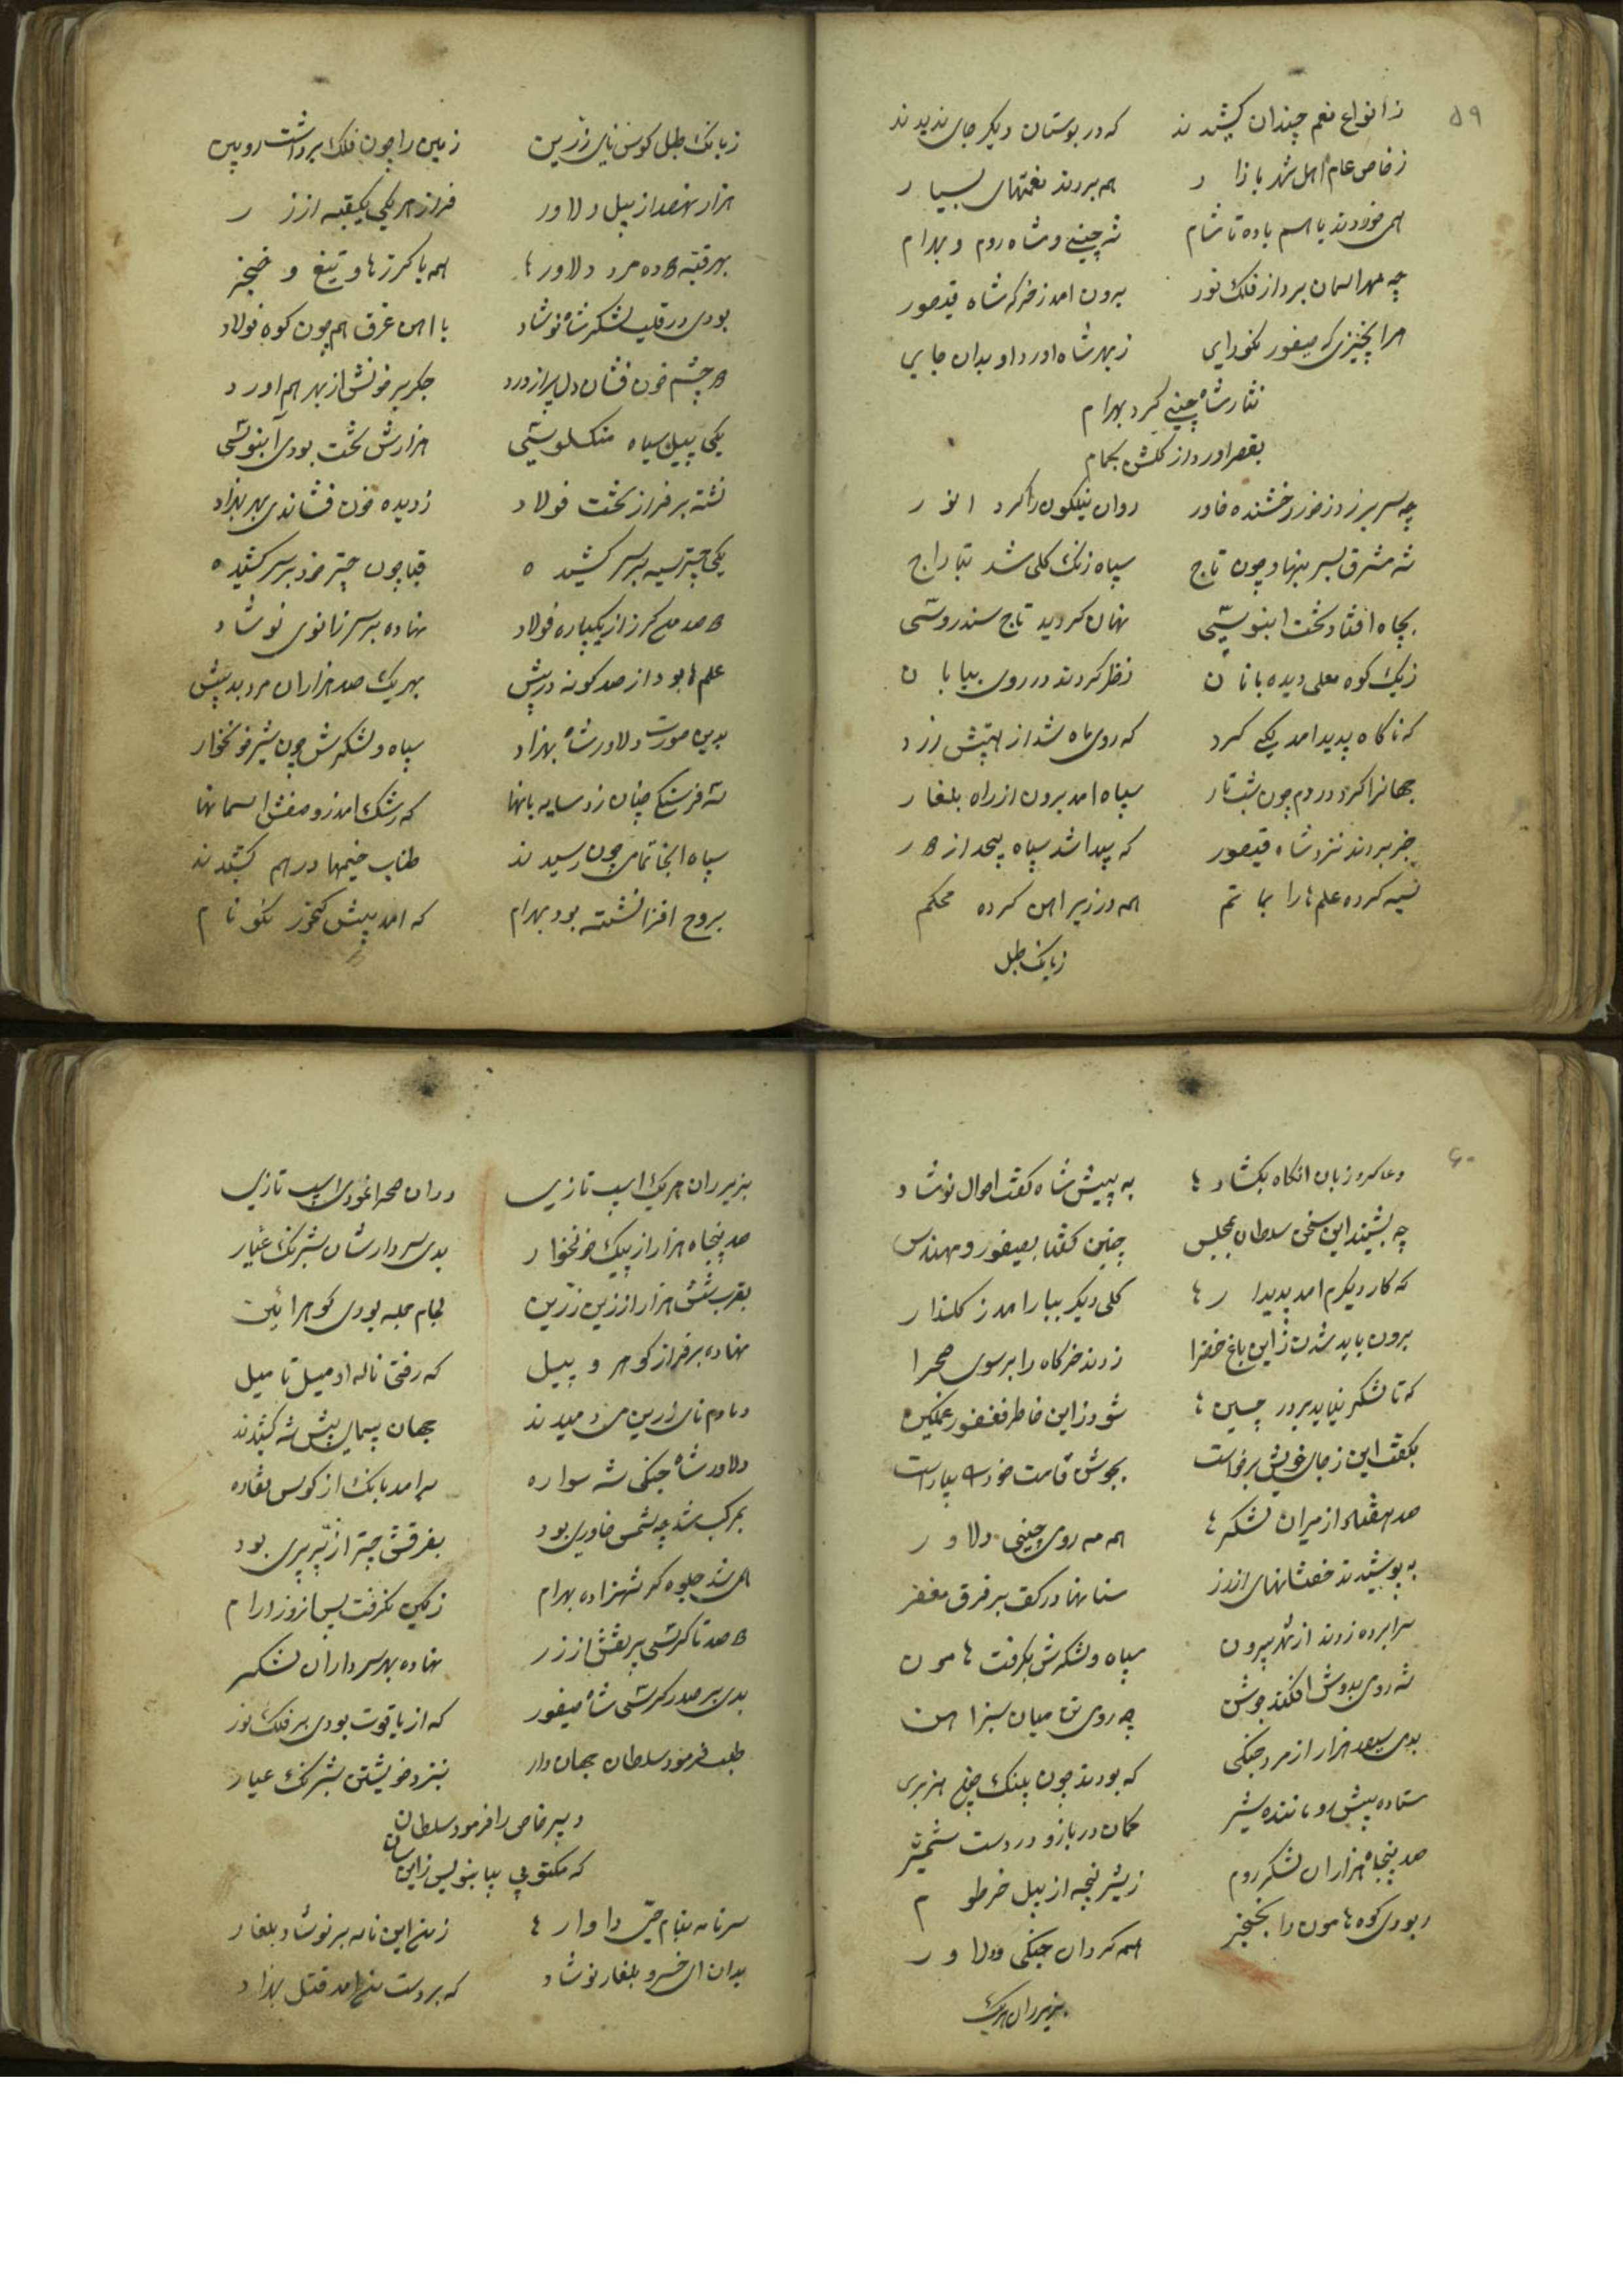 ۵۹
ز انواع نعم چندان کشیدند که در بوستان دیکر جای ندیدند
ز خاص عام اهل شهر بازار همه بردند نعمتهای بسیار
همی خوردند باهم باده تا شام شه چینی و شاه روم و بهرام
چه مهر اسمان برد از فلک نور برون امد ز خرکه شاه قیصور
هر ا پخیزی که صیفور نکورای ز بهر شاه اورد او بدان جایی
نثار شاه چینی کرد بهرام
بقصر اورد از کلشن بحمام
چه سر بر زد ز خور رخشنده خاور روان نیلکون را کرد انور
شه مشرق بسر بنهاد چون تاج سپاه زنک کلی شد بتاراج
بچاه افتاد تخت ابنوسیی نهان کردید تاج سندروسی
ز یک کوه معلی دیده بانان نظر کردند در روی بیابان
که ناکاه پدید امد یکی کرد که روی ماه شد از هیبتش زرد
جهانرا کرد در دم چون شب تار سپاه امد برون از راه بلغار
خبر بردند نزد شاه قیصور که پیدا شد سپاه بیحد از
سیه کرده علمها را بماتم همه در زیر اهن کرده محکم
ز بانک طبل
ز بانک طبل کوس نای زرین زمین را چون فلک برداشت رویین
هزار نهصد از پیل دلاور فراز هر یکی یکقبه از زر
بهر قبه ده مرد دلاورها همه با کرزها و تیغ و خنجر
بودی در قلب لشکر شاه نوشاد با اهن غرق همچون کوه فولاد
چشم خون فشان دل پر از درد جکر پر خونش از بهر هم اورد
یکی پیل سیاه منکلوسی هزارش تخت بودی آبنوسی
نشسته بر فراز تخت فولاد ز دیده خون فشاندی بهر بهزاد
یکی چتر سیه بر سر کشیده قبا چون چتر خود بر سر کشیده
صد من کرز از یکپاره فولاد نهاده بر سر زانوی نوشاد
علمها بود از صد کونه در پیش بهر یک صد هزاران مرد بد پیش
بدین صورت دلاور شاه بهزاد سپاه و لشکرش چون شیر خونخوار
سه فرسنکی چنان زد سایه بانها که رشک امد زو صفش اسمانها
سپاه انجا تمامی چون رسیدند طناب خیمها در هم کشیدند
بروح افزا نشسته بود بهرام که امد پیش کنجور نکونام
۶۰
دعا کرد زبان انکاه بکشادها به پیش شاه کفت احوال نوشاد
چه بشنید این سخن سلطان مجلس چنین کفتا بصیفور و مهندس
که کار دیکرم امد پدیدارها کلی دیکر ببار امد ز کلزار
برون باید شدن زاین باغ خضرا زدند خرکاه را بر سوی صحرا
که تا لشکر نیاید بر در چینها شود زاین خاطر فغفور غمکین
بکفت این ز جای خویش برخاست بجوش قامت خود بیاراست
صد هفتاد از میران لشکرها همه مه روی چینی دلاور
به پوشیدند خفتانهای از زر سنانها در کف بر فرق مغفر
سراپرده زدند از شهر بیرون سپاه و لشکرش بکرفت هامون
شه روی بدوش افکند جوشن چه روی تن میان سبز اهن
بدی سیصد هزار از مرد جنکی که بودند چون پلنک هزبری
ستاده پیش رو ماننده شیر کمان در بازو در دست شمشیر
صد پنجاه هزاران لشکر روم ز شیر پنجه از پیل خرطوم
ربودی کوه هامون را بخنجر همه کردان جنکی دلاور
بزیر ران هریک
بزیر ران هریک اسب تازی در ان صحرا نمودی اسب تازی
صد پنجاه هزار از پیک خونخوار بدی سردارشان شبرنک عیار
بقرب شش هزار از زین زرین لجام جمله بودی کوهر ائین
نهاده بر فراز کوهر و پیل که رفتی ناله او میل تا میل
دمادم نای زرین می دمیدند جهان پیمای پیش شه کشیدند
دلاور شاه جنکی شه سواره برامد بانک از کوس نقاره
بمرکب شد چه شمس خاوری بود بفرقش چتر از پر پری بود
همی شد جلوه کر شهزاده بهرام زمین نکرفت پس از وز ارام
صد تا کرسی پر نقش از زر نهاده بهر سرداران لشکر
بدی بر صدر کرسی شاه صیفور که از یاقوت بودی بر فلک نور
طلب فرمود سلطان جهاندار بنزد خویشتن شبرنک عیار
دبیر خاص را فرمود سلطان
که مکتوبی بیا بنویس زاین سان
سر نامه بنام حی داوارها ز من این نامه بر نوشاد بلغار
بدان ای خسرو بلغار نوشاد که بر دست من امد قتل بهزاد